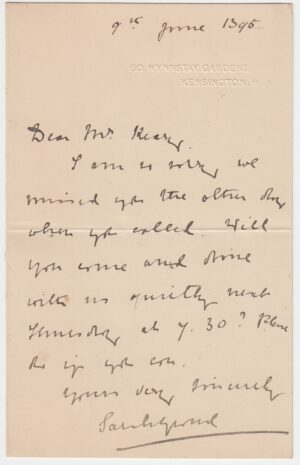 9th June 1895
60 WYNNSTAY GARDENS,
KENSINGTON, W.
Dear Mr. Keary,
I am so sorry we
missed you the other day
when you called. Will
you come and dine
with us quietly next
Tuesday at 7.30? Please
do if you can.
Yours very sincerely
Sarah Grand